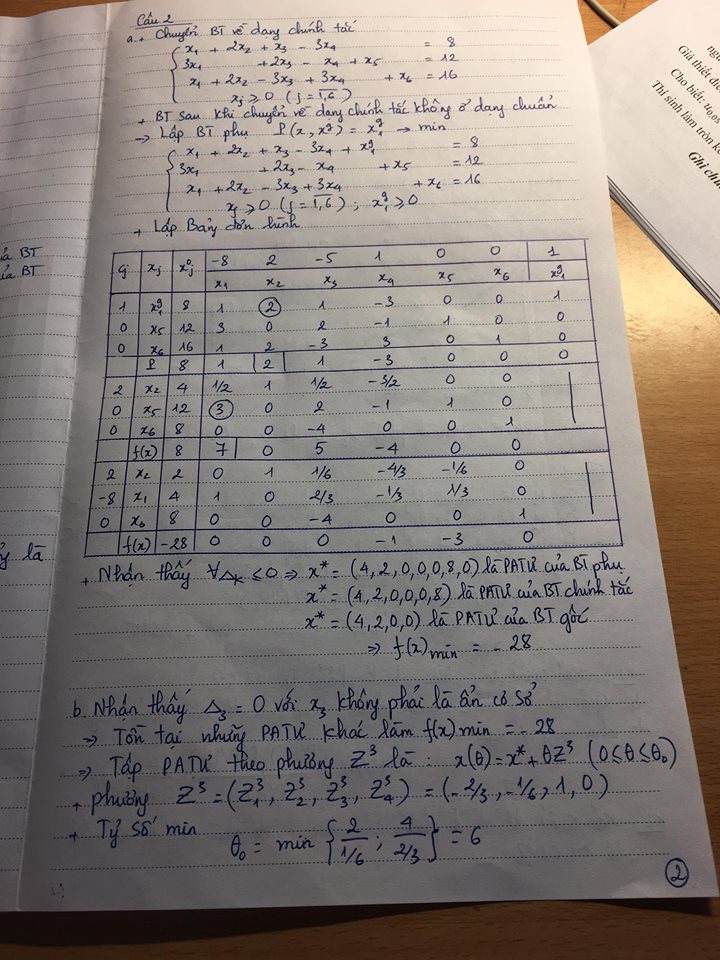 Câu 2
a. + Chuyển BT về dạng chính tắc
x1 + 2x2 + x3 - 3x4 = 8
3x1 + 2x3 - x4 + x5 = 12
x1 + 2x2 - 3x3 + 3x4 + x6 = 16
xj ≥ 0 (j = 1,6)
+ BT sau khi chuyển về dạng chính tắc không ở dạng chuẩn
→ Lập BT phụ P(x, x^g) = x1^g → min
x1 + 2x2 + x3 - 3x4 + x1^g = 8
3x1 + 2x3 - x4 + x5 = 12
x1 + 2x2 - 3x3 + 3x4 + x6 = 16
xj ≥ 0 (j = 1,6) ; x1^g ≥ 0
+ Lập Bảng đơn hình
cj xj xj^0 -8 2 -5 1 0 0 1
x1 x2 x3 x4 x5 x6 x1^g
1 x1^g 8 1 2 1 -3 0 0 1
0 x5 12 3 0 2 -1 1 0 0
0 x6 16 1 2 -3 3 0 1 0
P 8 1 2 1 -3 0 0 0
2 x2 4 1/2 1 1/2 -3/2 0 0
0 x5 12 3 0 2 -1 1 0
0 x6 8 0 0 -4 0 0 1
f(x) 8 7 0 5 -4 0 0
2 x2 2 0 1 1/6 -4/3 -1/6 0
-8 x1 4 1 0 2/3 -1/3 1/3 0
0 x6 8 0 0 -4 0 0 1
f(x) -28 0 0 0 -1 -3 0
+ Nhận thấy ∀Δk ≤ 0 ⇒ x* = (4,2,0,0,0,8,0) là PATƯ của BT phụ
x* = (4,2,0,0,0,8) là PATƯ của BT chính tắc
x* = (4,2,0,0) là PATƯ của BT gốc
⇒ f(x)min = -28
b. Nhận thấy Δ3 = 0 với x3 không phải là ẩn cơ sở
⇒ Tồn tại những PATƯ khác làm f(x)min = -28
⇒ Tập PATƯ theo phương Z^3 là : x(θ) = x* + θZ^3 (0 ≤ θ ≤ θ0)
+ phương Z^3 = (Z1^3, Z2^3, Z3^3, Z4^3) = (-2/3, -1/6, 1, 0)
+ Tỷ số min
θ0 = min {2/1/6 ; 4/2/3} = 6
2
của BT
của BT
là
Giả thiết
Cho biết: u0,05
Thí sinh làm tròn
Ghi